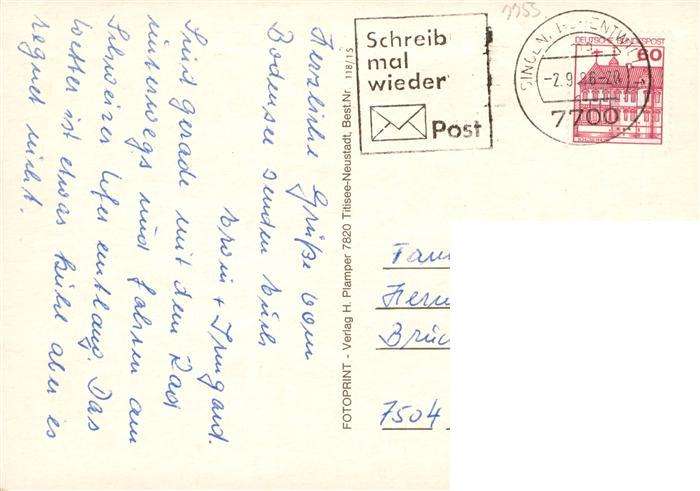 Herzliche Grüße vom
Bodensee senden Euch
Irmgard.
Sind gerade mit dem Rad
unterwegs und fahren am
Schweizer Ufer entlang. Das
Wetter ist etwas kühl aber es
regnet nicht.
FOTOPRINT - Verlag H. Plamper 7820 Titisee-Neustadt, Best.Nr 118/15
Schreib
mal
wieder
Post
SINGEN
-2.9.86-
7700
DEUTSCHE BUNDESPOST
60
7504